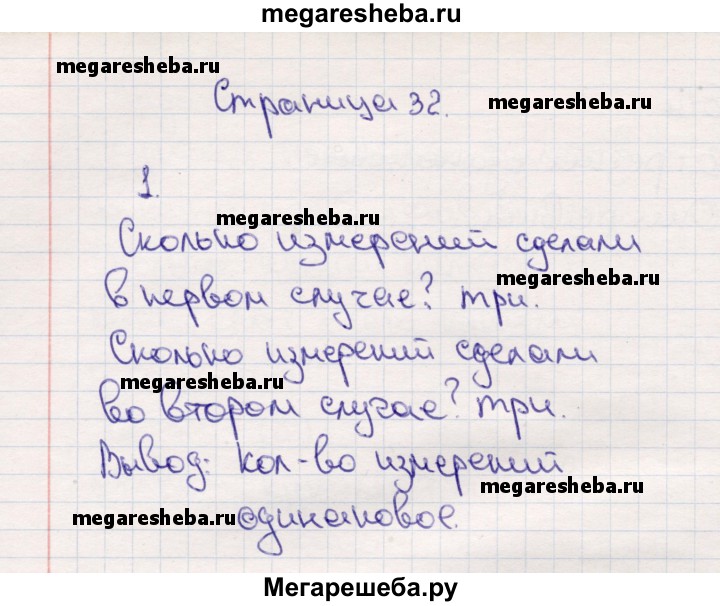 megaresheba.ru
megaresheba.ru
Страница 32.
megaresheba.ru
1.
megaresheba.ru
Сколько измерений сделали
megaresheba.ru
в первом случае? три.
Сколько измерений сделали
megaresheba.ru
во втором случае? три.
Вывод: кол-во измерений
megaresheba.ru
megaresheba.ru
одинаковое.
Мегарешеба.ру